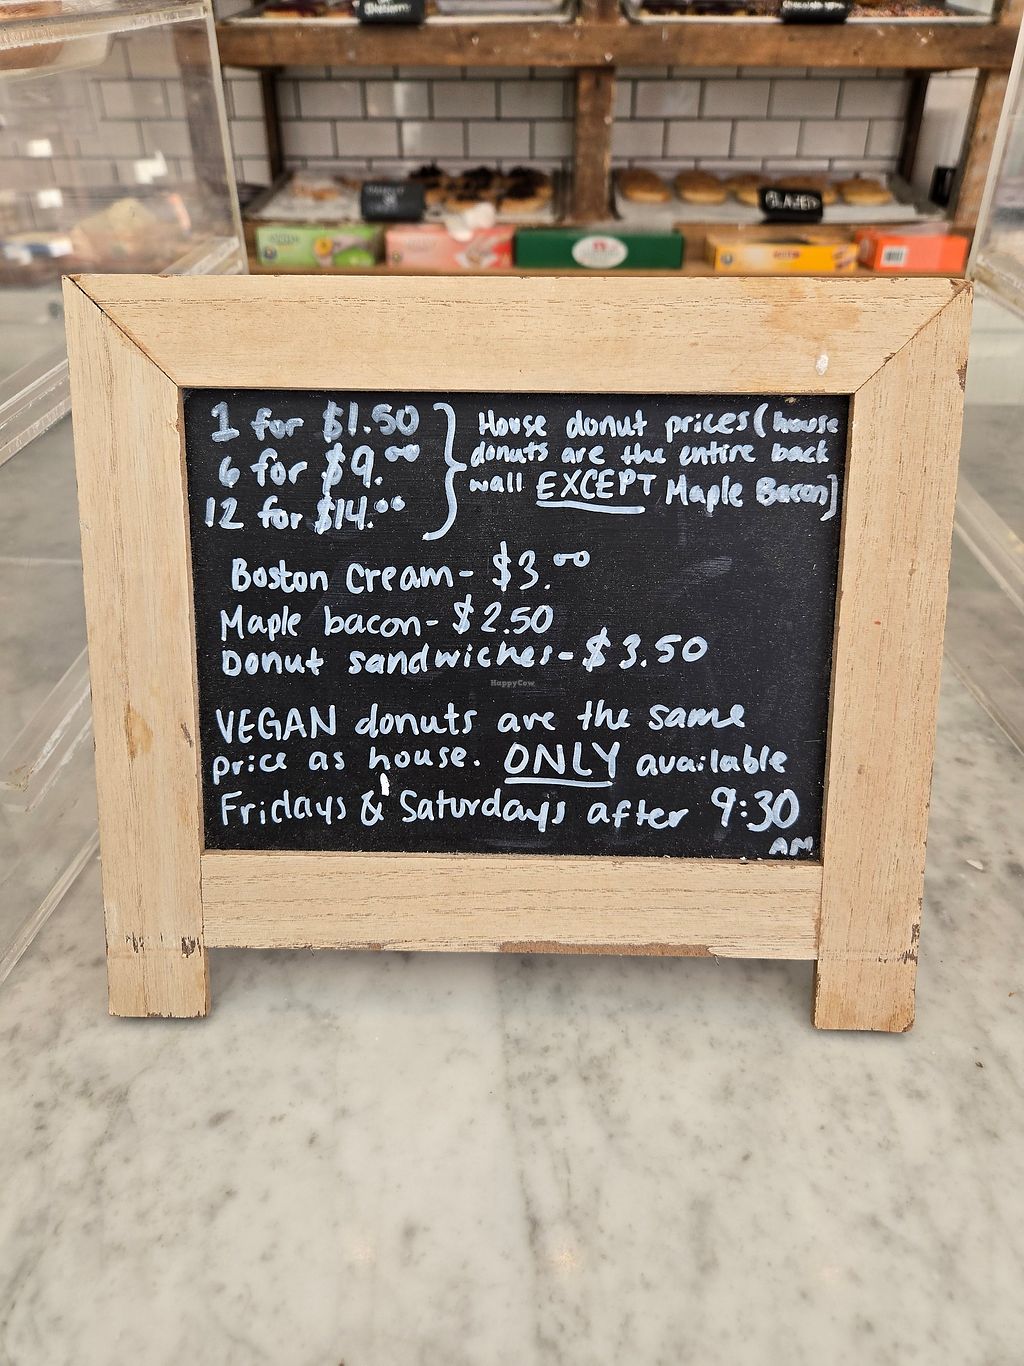 GLAZED
1 for $1.50
6 for $9.00
12 for $14.00
House donut prices (house
donuts are the entire back
wall EXCEPT Maple Bacon]
Boston Cream- $3.00
Maple bacon- $2.50
Donut sandwiches- $3.50
HappyCow
VEGAN donuts are the same
price as house. ONLY available
Fridays & Saturdays after 9:30
AM